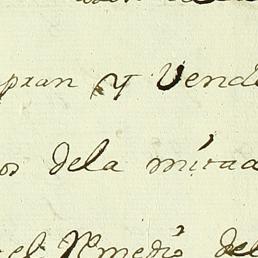 pran y Vend
os dela mitad
el Remedio del